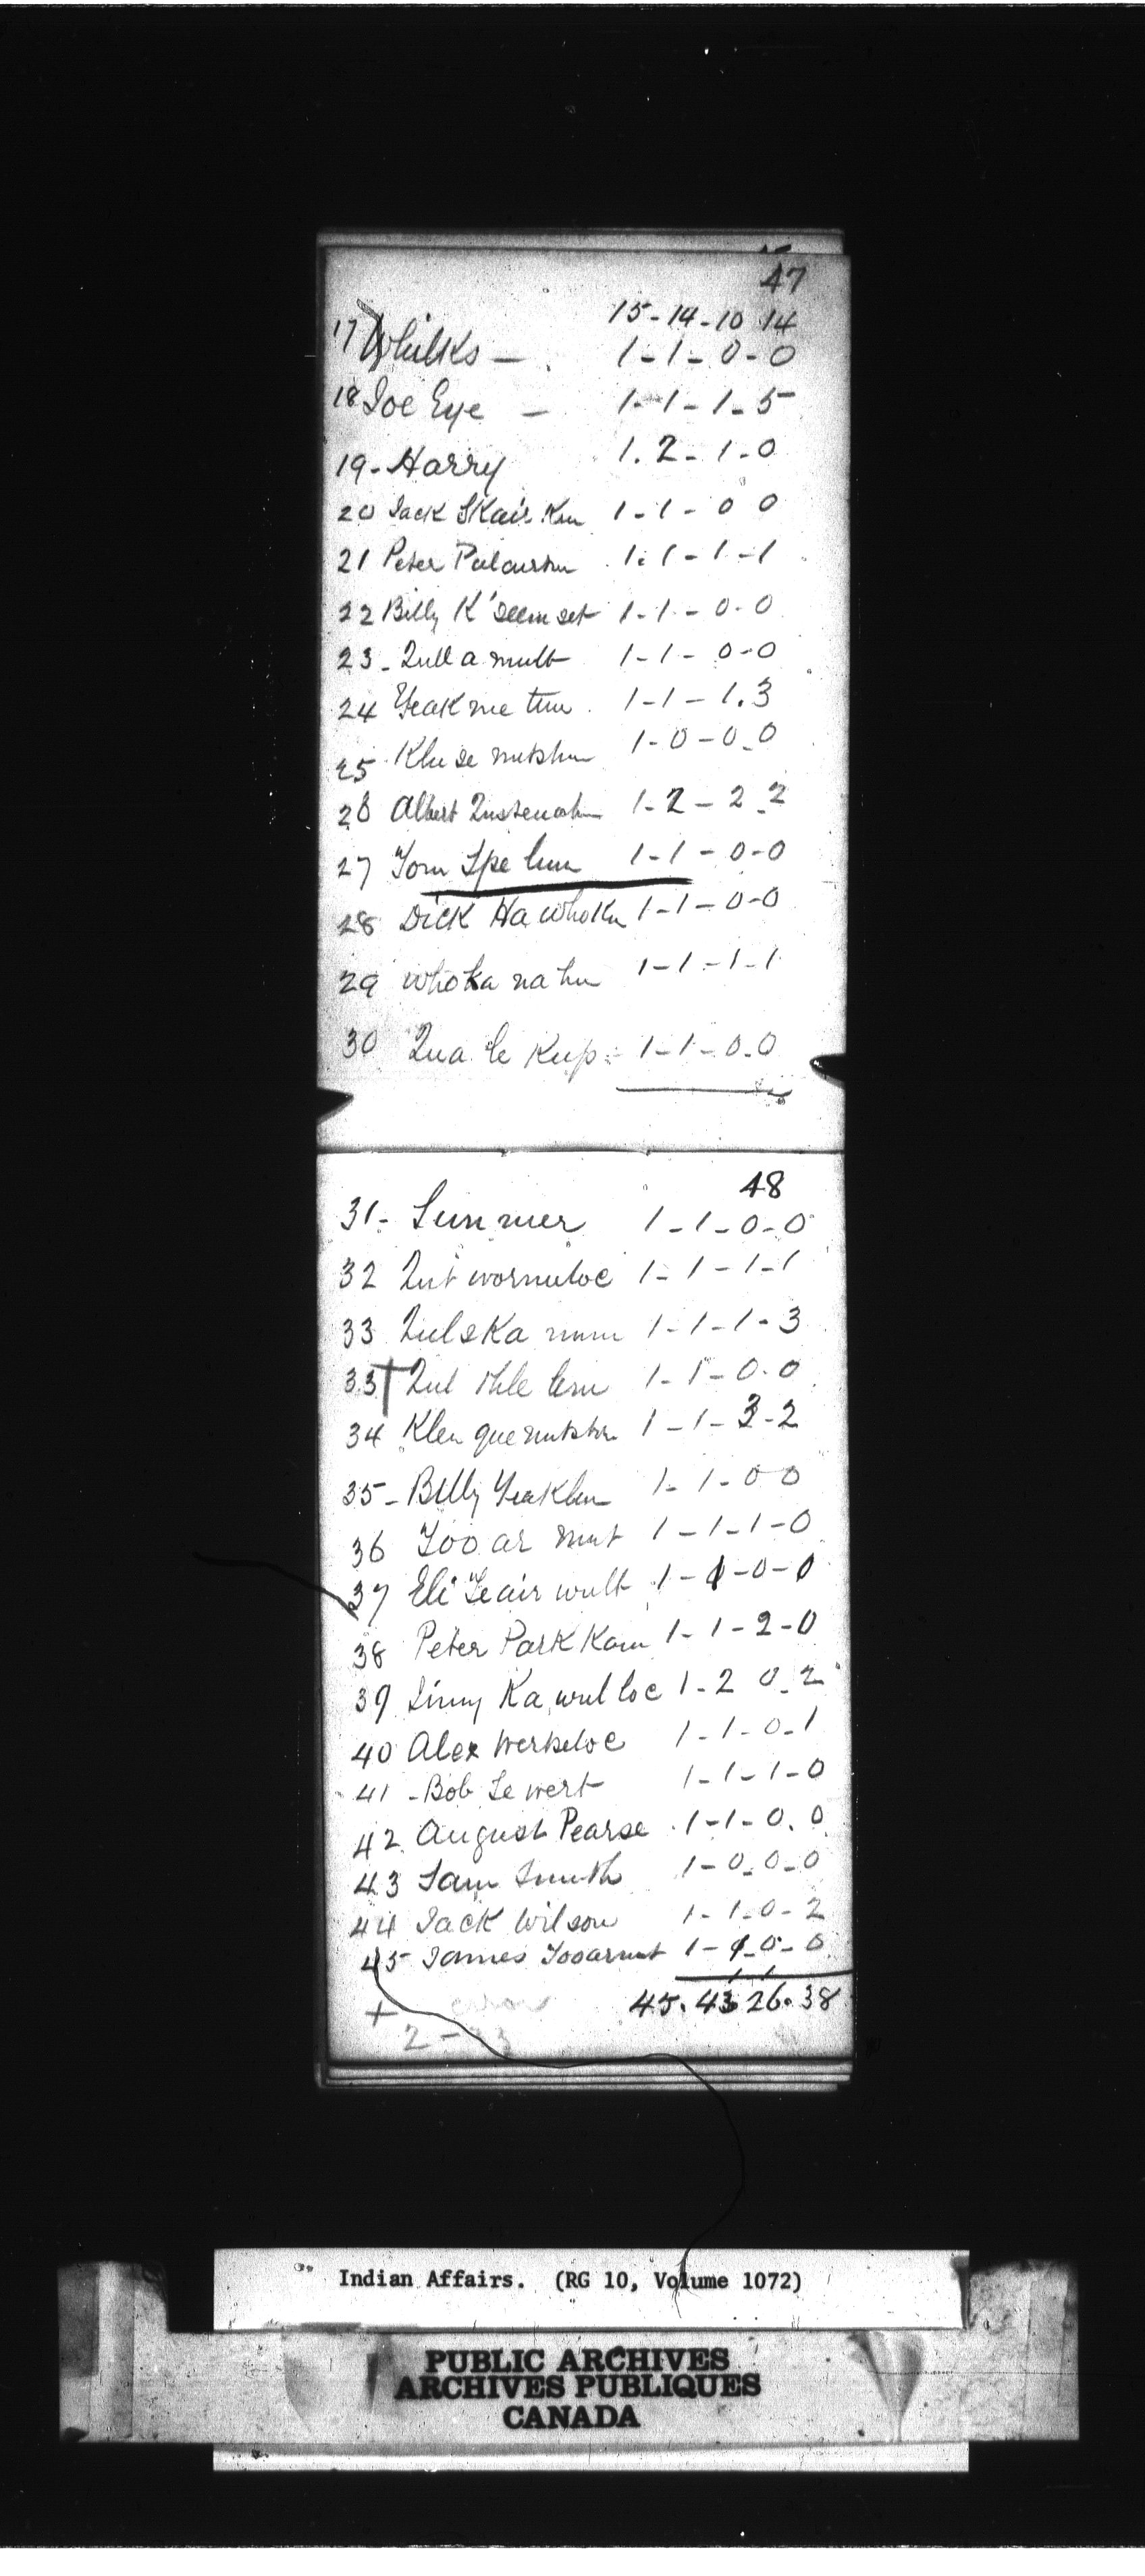 47
15-14-10 14
17 Whilks — 1-1-0-0
18 Joe Eye — 1-1-1-5
19- Harry 1.2-1-0
20 Jack Skair Km 1-1-0 0
21 Peter 1.1-1-1
22 Billy K'seem set 1-1-0-0
23- Qull a mult 1-1-0-0
24 Yeak me tun 1-1-1.3
25 1-0-0-0
26 Albert 1-2-2-2
27 Tom Spe lum 1-1-0-0
28 Dick Ha whoku 1-1-0-0
29 whoka na hu 1-1-1-1
30 Qua le Kup 1-1-0-0
48
31- Summer 1-1-0-0
32 1-1-1-1
33 1-1-1-3
33 1-1-0-0
34 1-1-3-2
35- Billy 1-1-0 0
36 Yoo ar mut 1-1-1-0
37 Eli 1- -0-
38 Peter Park Kam 1-1-2-0
39 Jimy Ka wul loc 1-2 0-2
40 Alex 1-1-0-1
41 -Bob Se wert 1-1-1-0
42 August Pearse 1-1-0.0
43 Sam Smith 1-0-0-0
44 Jack Wilson 1-1-0-2
45 James Yooarmut 1- -0-0
45.43 26.38
+ error
2-33
Indian Affairs. (RG 10, Volume 1072)
PUBLIC ARCHIVES
ARCHIVES PUBLIQUES
CANADA